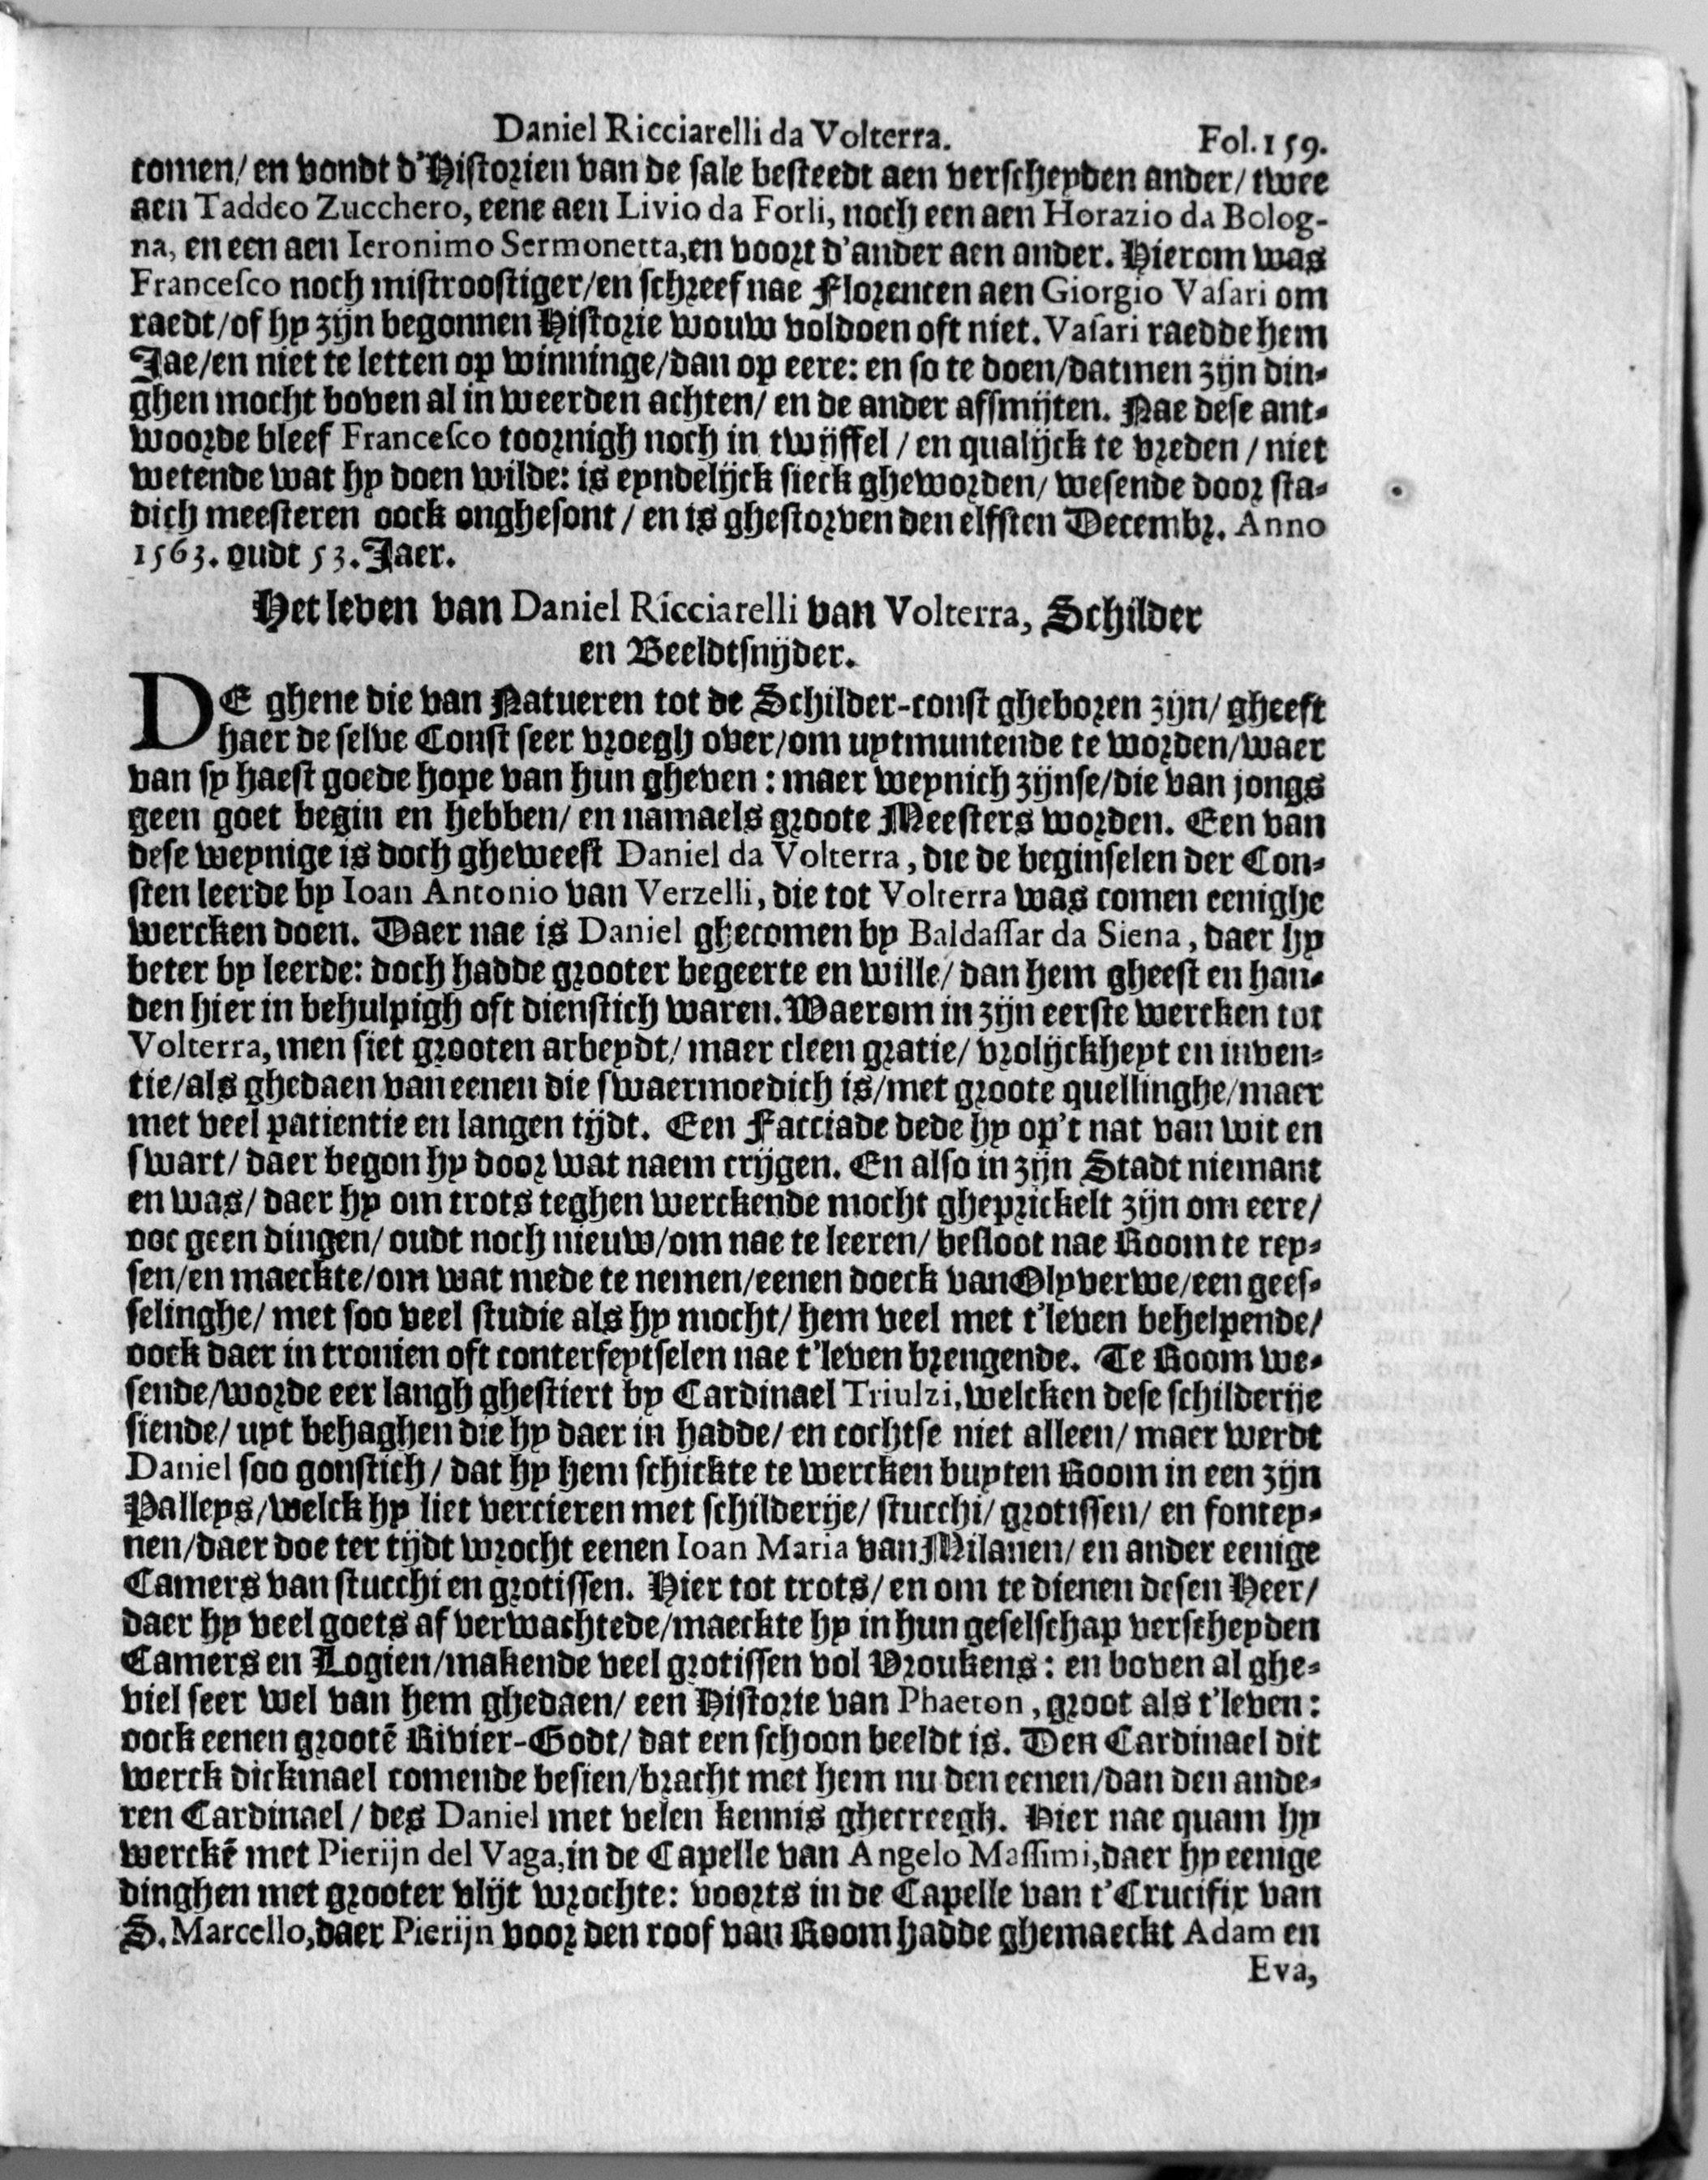 Daniel Ricciarelli da Volterra. Fol. 159.
comen/ en vondt d'Historien van de sale besteedt aen verscheyden ander/ twee
aen Taddeo Zucchero, eene aen Livio da Forli, noch een aen Horazio da Bolog-
na, en een aen Ieronimo Sermonetta, en voort d'ander aen ander. Hierom was
Francesco noch mistroostiger/ en schreef nae Florencen aen Giorgio Vasari om
raedt/ of hy zijn begonnen Historie wouw voldoen oft niet. Vasari raedde hem
Jae/ en niet te letten op winninge/ dan op eere: en so te doen/ datmen zijn din-
ghen mocht boven al in weerden achten/ en de ander afsmijten. Nae dese ant-
woorde bleef Francesco toornigh noch in twijffel / en qualijck te vreden / niet
wetende wat hy doen wilde: is eyndelijck sieck gheworden/ wesende door sta-
dich meesteren oock onghesont / en is ghestorven den elfsten Decembr. Anno
1563. oudt 53. Jaer.
Het leven van Daniel Ricciarelli van Volterra, Schilder
en Beeldtsnijder.
DE ghene die van Natueren tot de Schilder-const gheboren zijn/ gheeft
haer de selve Const seer vroegh over/ om uytmuntende te worden/ waer
van sy haest goede hope van hun gheven: maer weynich zijnse/ die van jongs
geen goet begin en hebben/ en namaels groote Meesters worden. Een van
dese weynige is doch gheweest Daniel da Volterra, die de beginselen der Con-
sten leerde by Ioan Antonio van Verzelli, die tot Volterra was comen eenighe
wercken doen. Daer nae is Daniel ghecomen by Baldassar da Siena, daer hy
beter by leerde: doch hadde grooter begeerte en wille/ dan hem gheest en han-
den hier in behulpigh oft dienstich waren. Waerom in zijn eerste wercken tot
Volterra, men siet grooten arbeydt/ maer cleen gratie/ vrolijckheyt en inven-
tie/ als ghedaen van eenen die swaermoedich is/ met groote quellinghe/ maer
met veel patientie en langen tijdt. Een Facciade dede hy op't nat van wit en
swart/ daer begon hy door wat naem crijgen. En also in zijn Stadt niemant
en was/ daer hy om trots teghen werckende mocht gheprickelt zijn om eere/
ooc geen dingen/ oudt noch nieuw/ om nae te leeren/ besloot nae Room te rey-
sen/ en maeckte/ om wat mede te nemen/ eenen doeck van Olyverwe/ een gees-
selinghe/ met soo veel studie als hy mocht/ hem veel met t'leven behelpende/
oock daer in tronien oft conterfeytselen nae t'leven brengende. Te Room we-
sende/ worde eer langh ghestiert by Cardinael Triulzi, welcken dese schilderije
siende/ uyt behaghen die hy daer in hadde/ en cochtse niet alleen/ maer werdt
Daniel soo gonstich/ dat hy hem schickte te wercken buyten Room in een zijn
Palleys/ welck hy liet vercieren met schilderije/ stucchi/ grotissen/ en fontey-
nen/ daer doe ter tijdt wrocht eenen Ioan Maria van Milanen/ en ander eenige
Camers van stucchi en grotissen. Hier tot trots/ en om te dienen desen Heer/
daer hy veel goets af verwachtede/ maeckte hy in hun geselschap verscheyden
Camers en Logien/ makende veel grotissen vol Vroukens: en boven al ghe-
viel seer wel van hem ghedaen/ een Historie van Phaeton, groot als t'leven:
oock eenen grootẽ Rivier-Godt/ dat een schoon beeldt is. Den Cardinael dit
werck dickmael comende besien/ bracht met hem nu den eenen/ dan den ande-
ren Cardinael/ des Daniel met velen kennis ghecreegh. Hier nae quam hy
werckẽ met Pierijn del Vaga, in de Capelle van Angelo Massimi, daer hy eenige
dinghen met grooter vlijt wrochte: voorts in de Capelle van t'Crucifix van
S. Marcello, daer Pierijn voor den roof van Room hadde ghemaeckt Adam en
Eva,